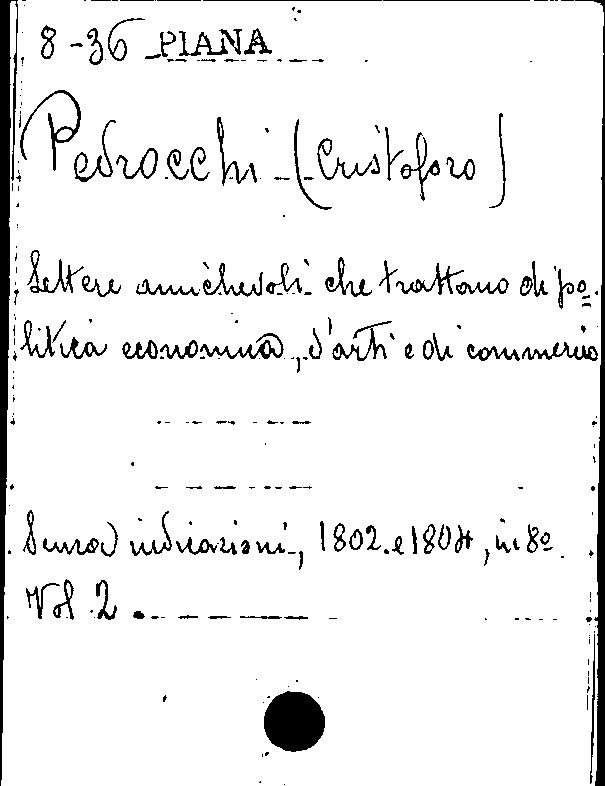 8-36 PIANA
Pedrocchi (Cristoforo)
Lettere amichevoli che trattano di po=
litica economica, d'arti e di commercio
Senza indicazioni, 1802 e 1804, in 8º
Vol. 2.